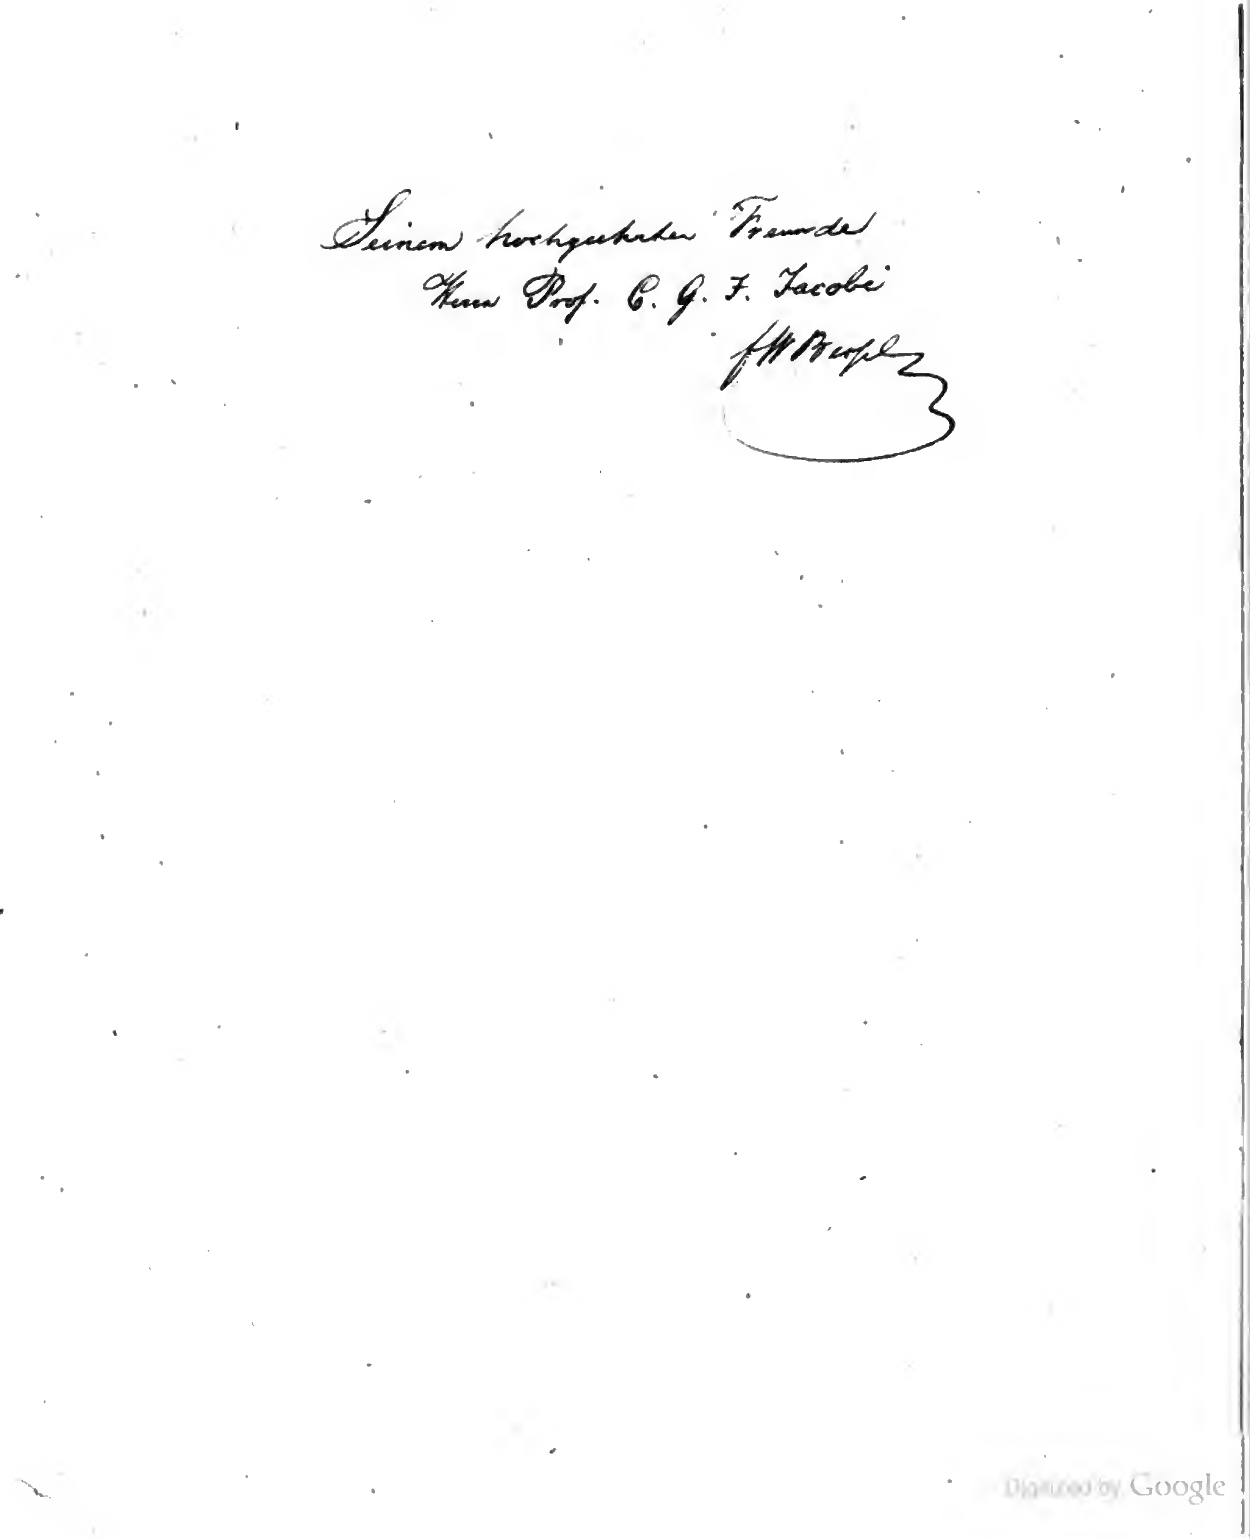 Seinem hochgeehrten Freunde
Herrn Prof. C. G. F. Jacobi
Digitized by Google